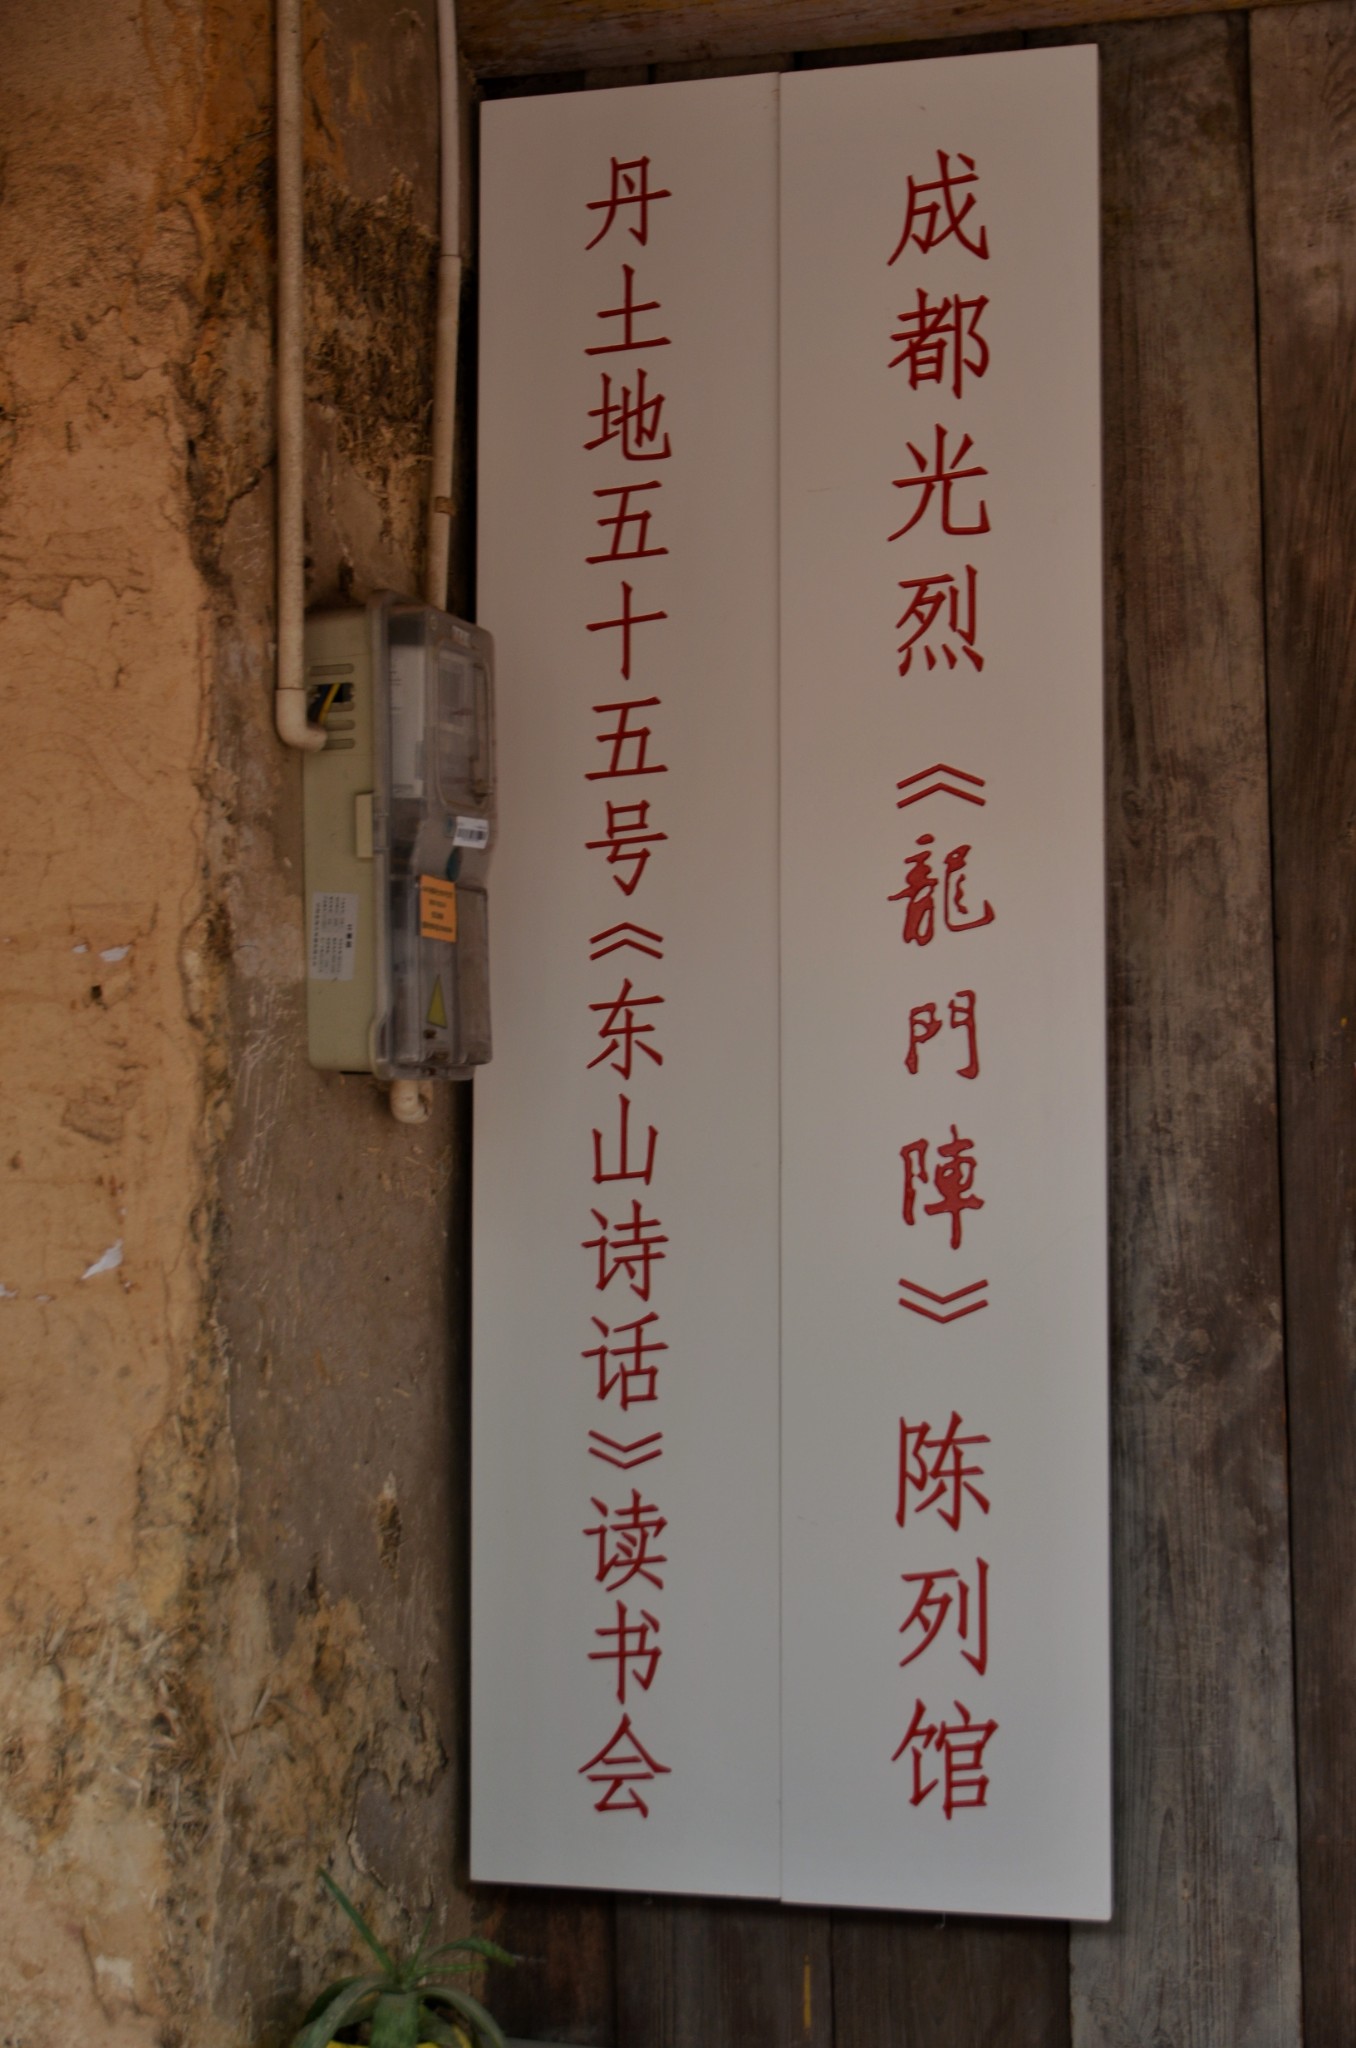 成都光烈《龍門陣》陈列馆
丹土地五十五号《东山诗话》读书会